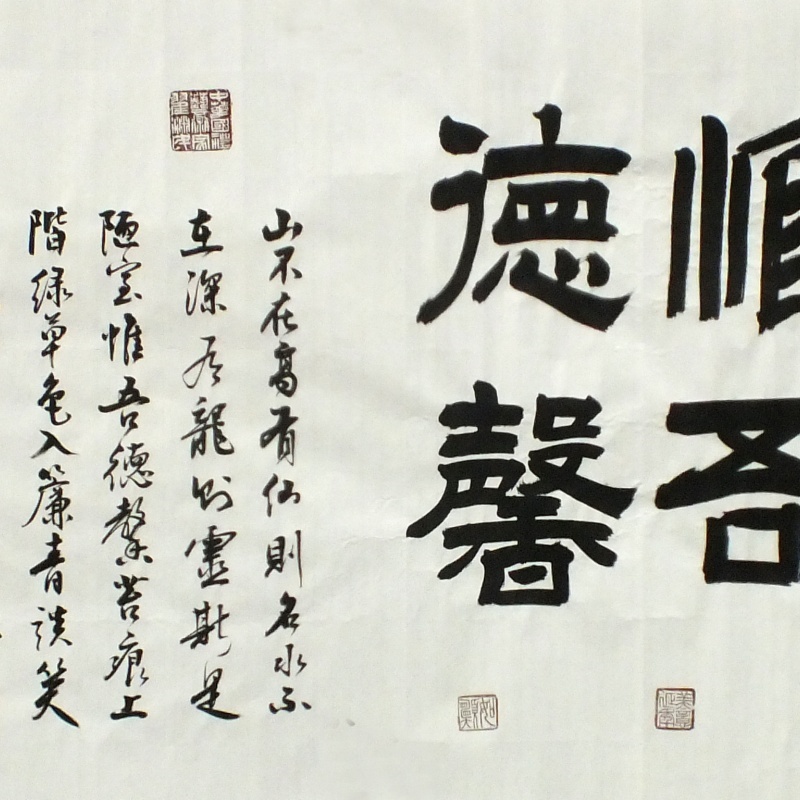 惟吾
德馨
山不在高有仙則名水不
在深有龍則靈斯是
陋室惟吾德馨苔痕上
階緑草色入簾青談笑